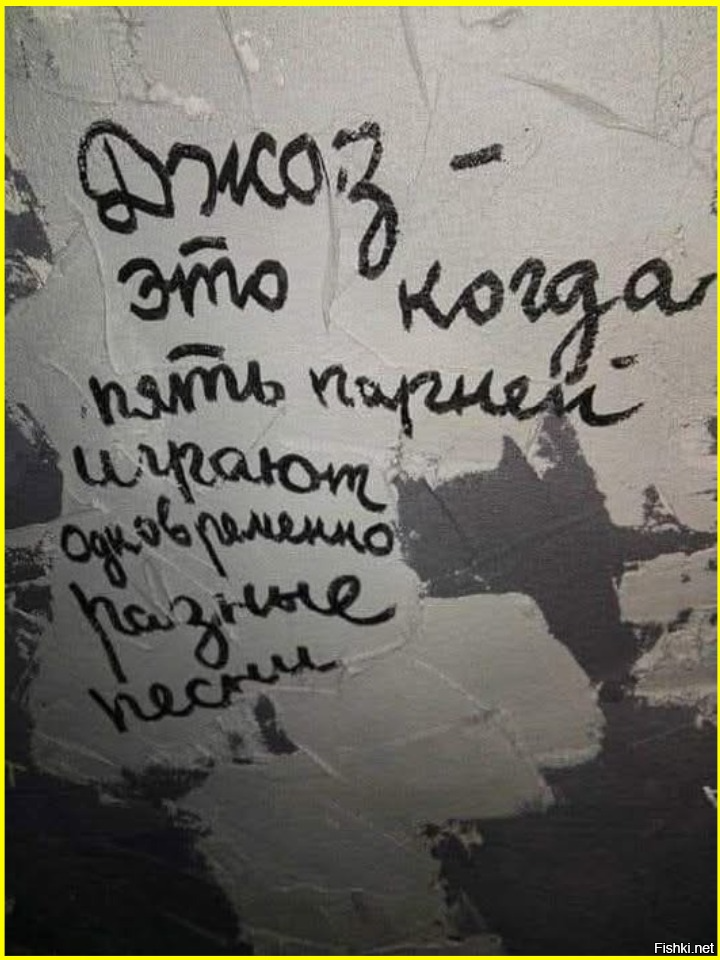 Джоз -
это когда
пять парней
играют
одновременно
разные
песни
Fishki.net